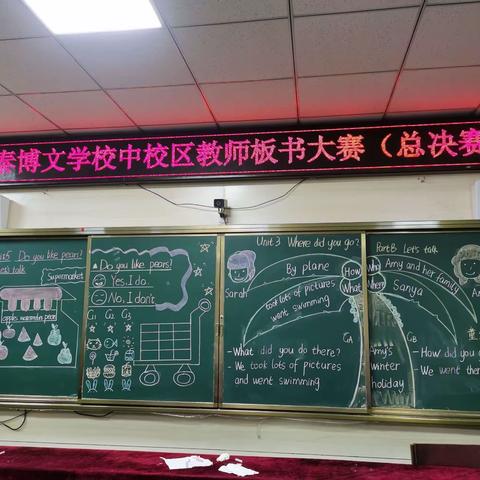 泰博文学校中校区教师板书大赛（总决赛
Do you like pears?
Let's talk
Supermarket
apples watermelon pears
Do you like pears?
Yes, I do.
No, I don't
G1 G2 G3
Unit 3 Where did you go?
Sarah
By plane
took lots of pictures
went swimming
How
What
GA
- What did you do there?
- We took lots of pictures
and went swimming
Part B Let's talk
Who
Amy and her family
Where
Sanya
Amy's
winter
holiday
GB
- How did you g
- We went ther